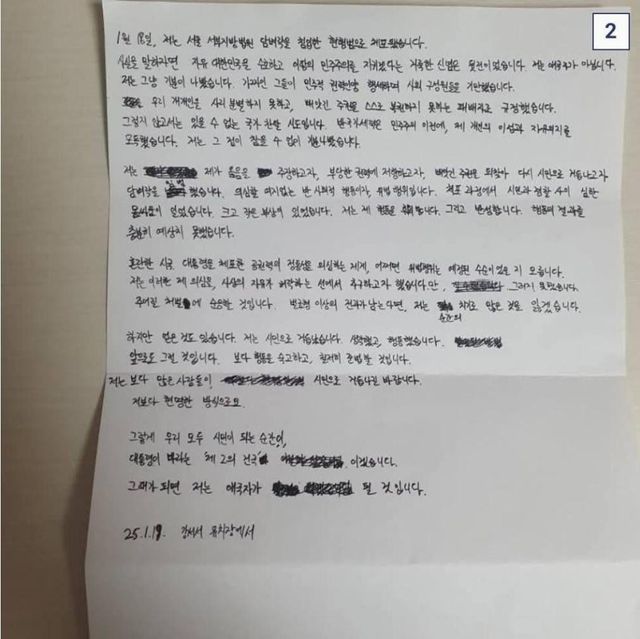 2
1월 18일, 저는 서울 서부지방법원 담벼락을 침입한 현행범으로 체포됐습니다.
사실을 말하자면 자유 대한민국을 수호하고 이 땅의 민주주의를 지키겠다는 거창한 신념은 뒷전이었습니다. 저는 애국자가 아닙니다.
저는 그냥 기분이 나빴습니다. 가짜인 그들이 민주적 권력인양 행세하며 사회 구성원들을 기만했습니다.
우리 개개인을 사리 분별하지 못하고, 빼앗긴 주권을 스스로 복권하지 못하는 패배자로 규정했습니다.
그렇지 않고서는 있을 수 없는 국가 찬탈 시도입니다. 반국가세력은 민주주의 이전에, 제 개인의 이성과 자유의지를
모독했습니다. 저는 그 점이 참을 수 없이 화났습니다.
저는 제가 옳음을 주장하고자, 부당한 권력에 저항하고자, 빼앗긴 주권을 되찾아 다시 시민으로 거듭나고자
담벼락을 넘었습니다. 의심할 여지없는 반사회적 행동이자, 위법 행위입니다. 체포 과정에서 시민과 경찰 사이 심한
몸싸움이 있었습니다. 크고 작은 부상이 있었습니다. 저는 제 행동을 후회합니다. 그리고 반성합니다. 행동의 결과를
충분히 예상치 못했습니다.
혼란한 시국. 대통령을 체포한 공권력의 정통성을 의심하는 제게, 어쩌면 위법행위는 예정된 수순이었을지 모릅니다.
저는 이러한 제 의심을, 사상의 자유가 허락하는 선에서 추구하고자 했습니다만, 그러지 못했습니다.
주어질 처벌에 순응할 것입니다. 벌금형 이상의 전과가 남는다면, 저는 순간의 치기로 많은 것을 잃겠습니다.
하지만 얻은 것도 있습니다. 저는 시민으로 거듭났습니다. 생각했고, 행동했습니다.
앞으로도 그럴 것입니다. 보다 행동을 숙고하고, 철저히 준법할 것입니다.
저는 보다 많은 사람들이 시민으로 거듭나길 바랍니다.
저보다 현명한 방식으로요.
그렇게 우리 모두 시민이 되는 순간이,
대통령이 바라는 '제 2의 건국' 이겠습니다.
그때가 되면 저는 애국자가 될 것입니다.
25.1.19. 강서서 유치장에서